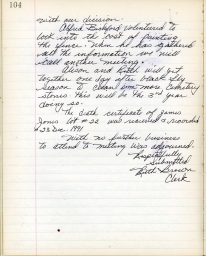 104
with our decision.
Alfred Bashford volunteered to
look into the cost of painting
the fence. When he has gathered
all the information we will
call another meeting.
and Ruth will get
together one day after black fly
season to clean some more Cemetery
stones this will be the 3rd year
doing so.
The death certificate of James
Jones Lot # 22 was received & recorded
23 Dec. 1991
With no further business
to attend to meeting was adjourned.
Respectfully
Submitted
Ruth
Clerk